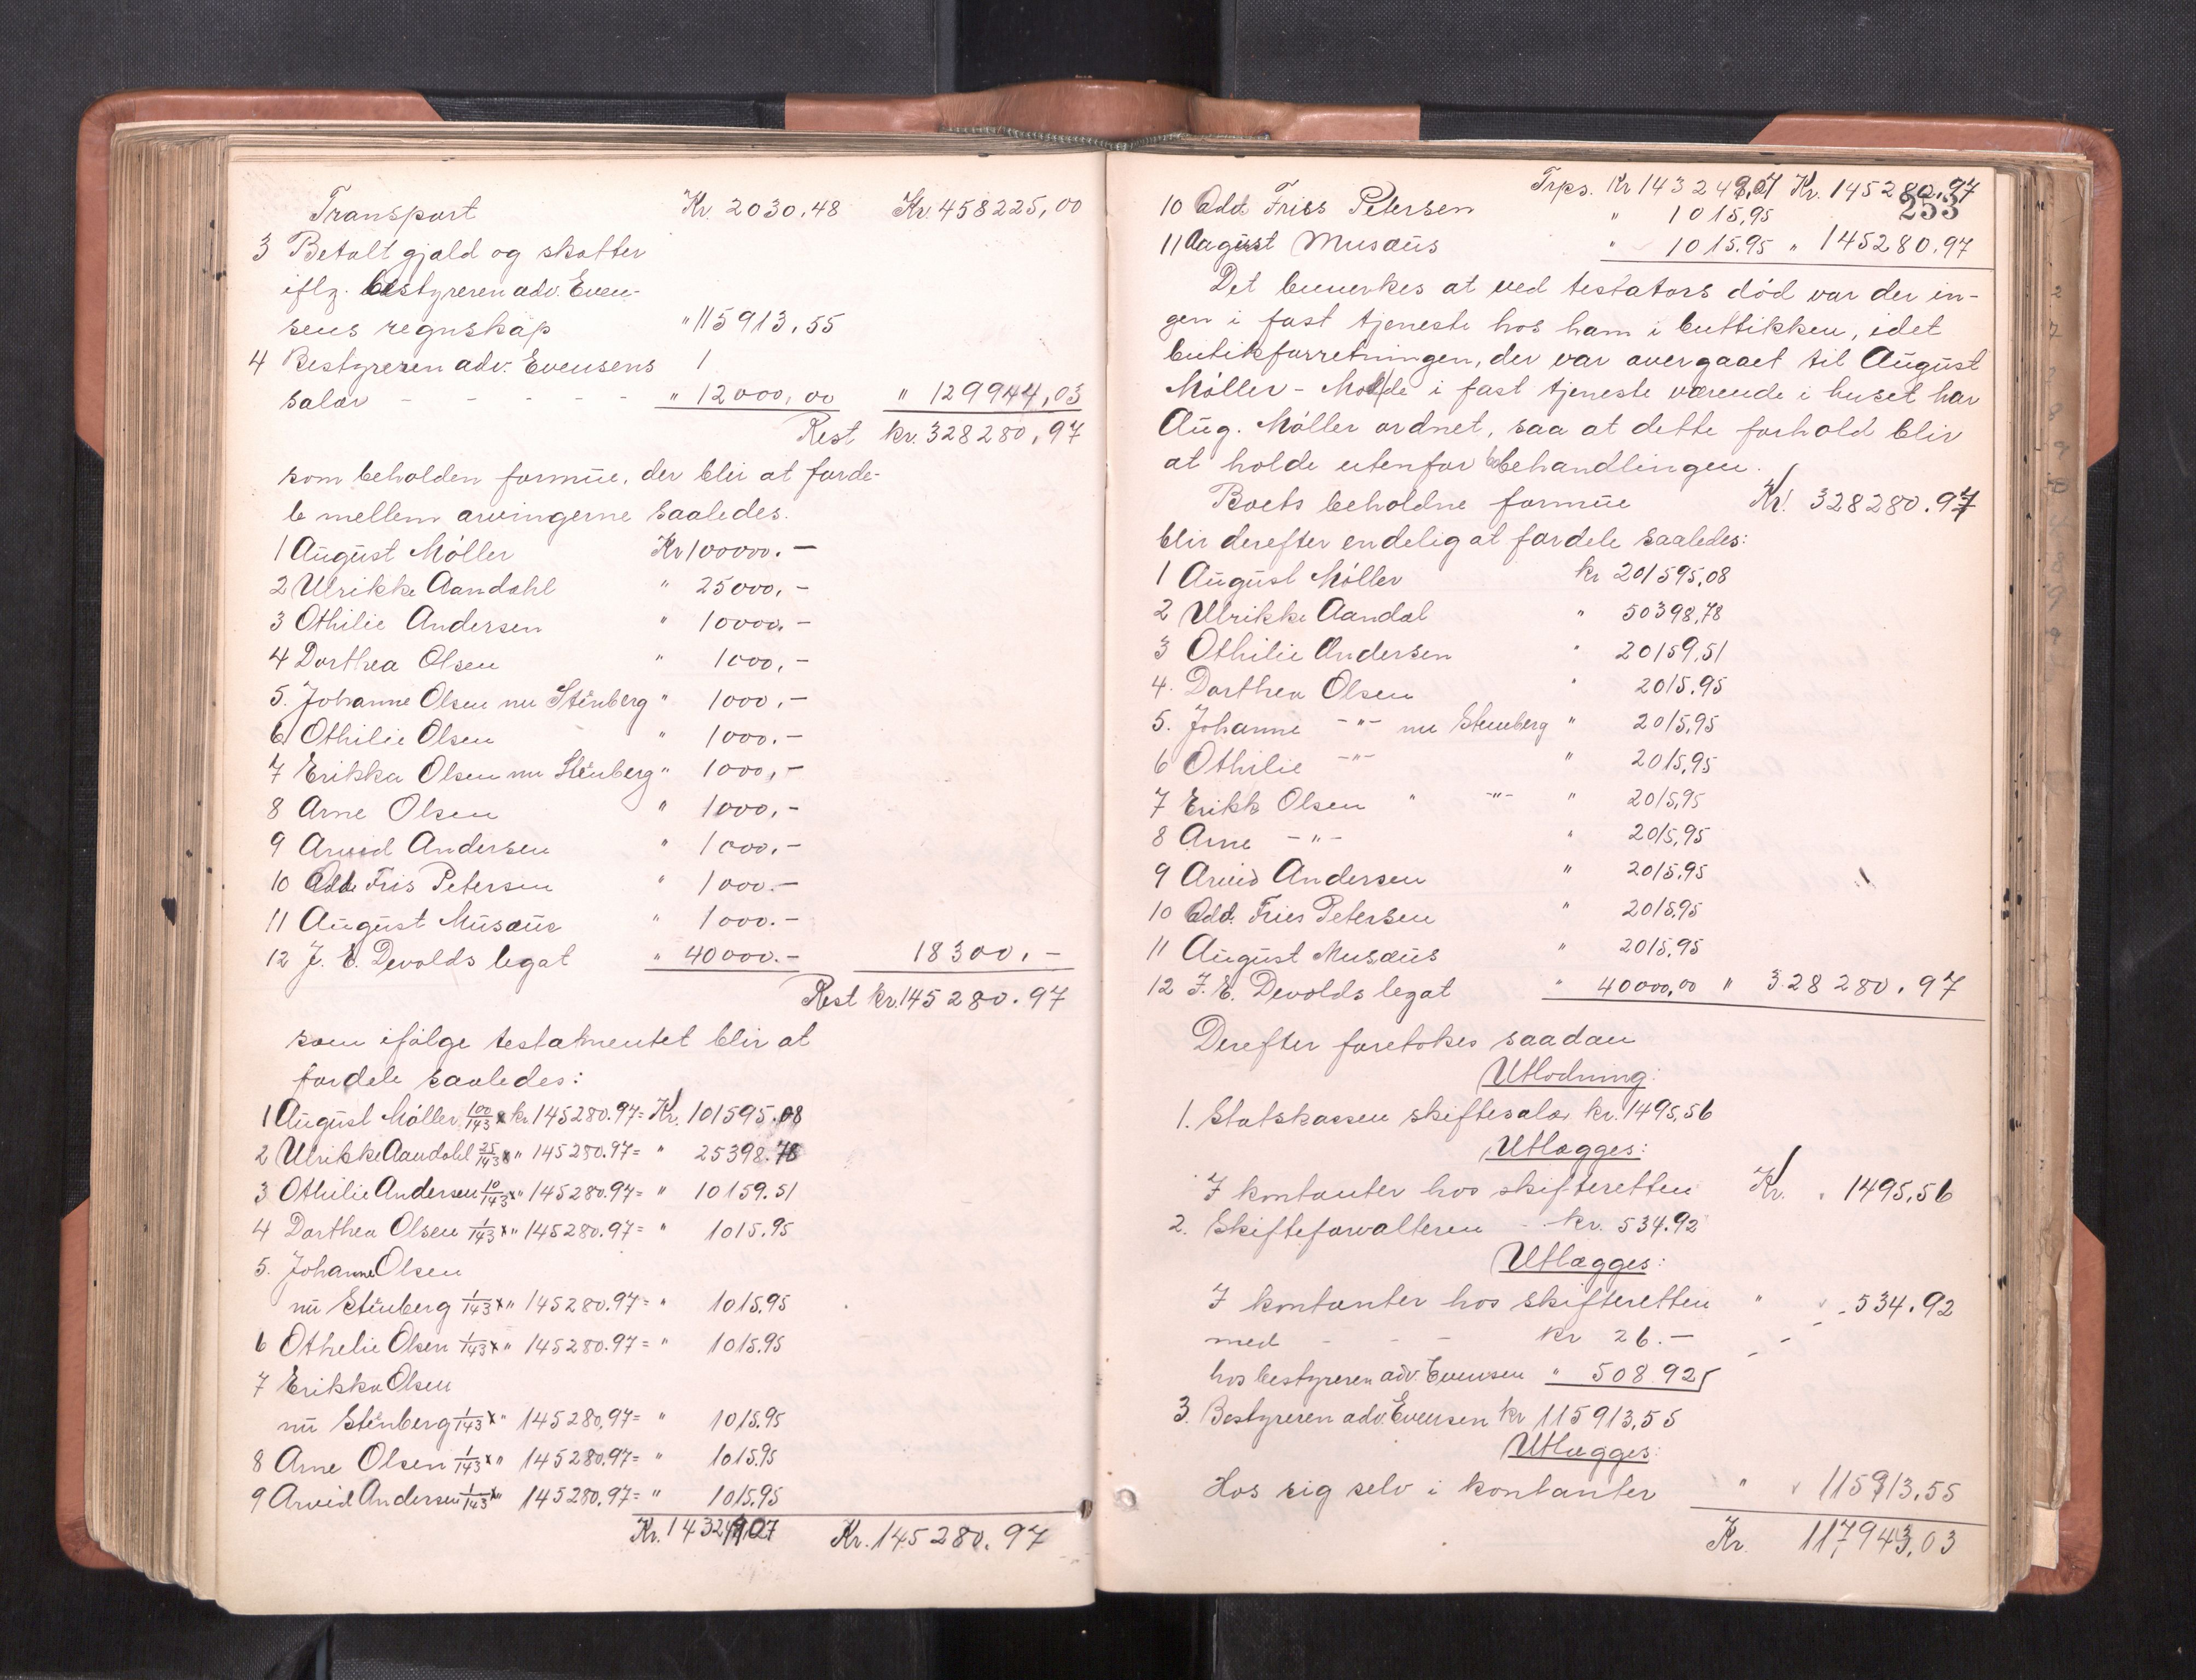 Transport Kr. 2030.48 Kr. 458225,00
3 Betalt gjæld og skatter
iflg. bestyreren adv. Even-
sens regnskap " 115913.55
4 Bestyreren adv. Evensens
salær - - - - - " 12000,00 " 129944,03
Rest kr. 328280,97
som beholden formue, der blir at forde-
le mellem arvingerne saaledes.
1 August Møller Kr 100000.-
2 Ulrikke Aandahl " 25000,-
3 Othilie Andersen " 10000,-
4 Dorthea Olsen " 1000,-
5. Johanne Olsen nu Stenberg " 1000,-
6 Othilie Olsen " 1000.-
7 Erikka Olsen nu Stenberg " 1000,-
8 Arne Olsen " 1000,-
9 Arvid Andersen " 1000,-
10 Odd Fris Petersen " 1000.-
11 August Musæus " 1000.-
12 J. E. Devolds legat " 40000.- 18300,-
Rest kr. 145280.97
som ifølge testamentet blir at
fordele saaledes:
1 August Møller 100/143 x kr 145280.97 = Kr. 101595.08
2 Ulrikke Aandahl 25/143 x " 145280.97 = " 25398.78
3 Othilie Andersen 10/143 x " 145280.97 = " 10159.51
4 Dorthea Olsen 1/143 x " 145280.97 = " 1015.95
5. Johanne Olsen
nu Stenberg 1/143 x " 145280.97 = " 1015.95
6 Othelie Olsen 1/143 x " 145280.97 = " 1015.95
7 Erikka Olsen
nu Stenberg 1/143 x " 145280,97 = " 1015.95
8 Arne Olsen 1/143 x " 145280.97 = " 1015.95
9 Arvid Andersen 1/143 x " 145280,97 = " 1015.95
Kr. 143249,07 Kr. 145280.97
Trps. Kr 143249,07 Kr. 145280,97
253
10 Odd Friss Petersen " 1015,95
11 August Musæus " 1015.95 " 145280,97
Det bemerkes at ved testators død var der in-
gen i fast tjeneste hos ham i buttikken, idet
butikforretningen, der var overgaaet til August
Møller - Molde i fast tjeneste værende i huset har
Aug. Møller ordnet, saa at dette forhold blir
at holde utenfor bobehandlingen.
Boets beholdne formue Kr. 328280.97
blir derefter endelig at fordele saaledes:
1 August Møller kr 201595,08
2 Ulrikke Aandal " 50398,78
3 Othilie Andersen " 20159,51
4. Dorthea Olsen " 2015.95
5. Johanne -"- nu Stenberg " 2015,95
6 Othilie -"- " 2015,95
7 Erikk Olsen " -"- " 2015,95
8 Arne -"- " 2015,95
9 Arvid Andersen " 2015.95
10 Odd. Fries Petersen " 2015,95
11 August Musæus " 2015,95
12 J. E. Devolds legat " 40000,00 " 328280.97
Derefter foretokes saadan
Utlodning:
1. Statskassen skiftesalær kr. 1495,56
Utlægges:
I kontanter hos skifteretten Kr. " 1495,56
2. Skifteforvalteren - kr. 534.92
Utlægges:
I kontanter hos skifteretten " 534.92
med - - - kr 26.-
hos bestyreren adv. Evensen " 508.92
3. Bestyreren adv. Evensen kr 115913,55
Utlægges:
Hos sig selv i kontanter " 115913.55
Kr. 117,943,03